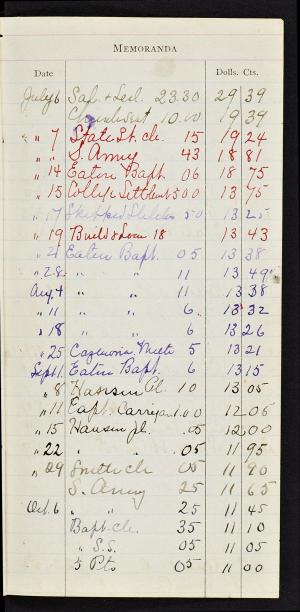 MEMORANDA
Date Dolls. Cts.
July 6 Saf. + Lecl. 23.30 29 39
10.00 19 39
" 7 State St. ch. 15 19 24
" " S. Army 43 18 81
" 14 Eaton Bapt 06 18 75
" 15 College Settlmt 500 13 75
" 17 50 13 25
" 19 Build & Loan 18 13 43
" 21 Eaten Bapt. 05 13 38
" 28 " " 11 13 49
Aug. 4 " " 11 13 38
" 11 " " 6 13 32
" 18 " " 6 13 26
" 25 Cazenovia Meete 5 13 21
Sept 1. Eaten Bapt. 6 13 15
" 8 Hanson Pl. 10 13 05
" 11 Eapt. Carryan 1.00 12 05
" 15 Hanson Pl. .05 12 00
" 22 " " .05 11 95
" 29 Smith ch 05 11 90
S. Army 25 11 65
Oct. 6 " " 25 11 45
Bapt. ch. 35 11 10
" S.S. 05 11 05
5 Pts 05 11 00